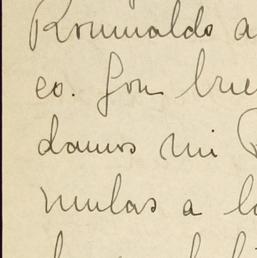 Romualdo a
eo. Son bue
damos mi
mulas a l